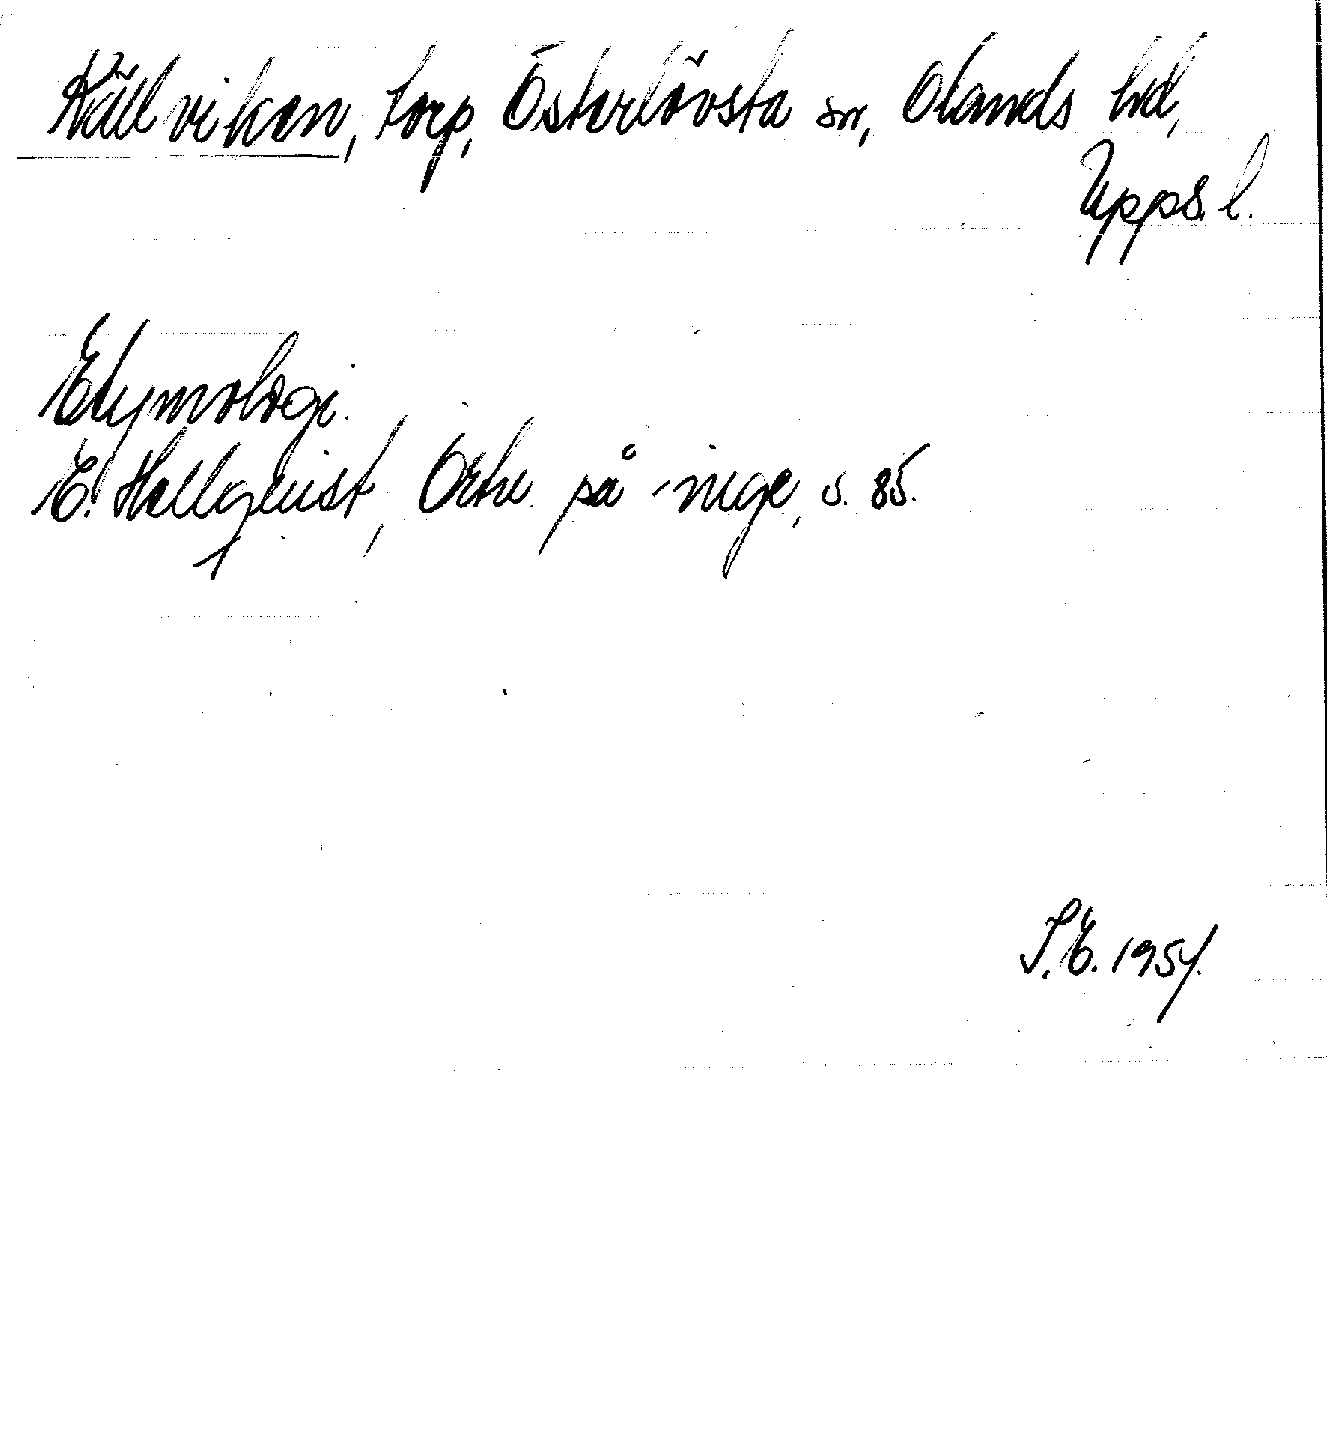 Källviken, torp, Österlövsta sn, Olands hd,
Upps. l.
Etymologi.
E. Hellquist, Ortn. på -inge, s. 85.
S. E. 1954.